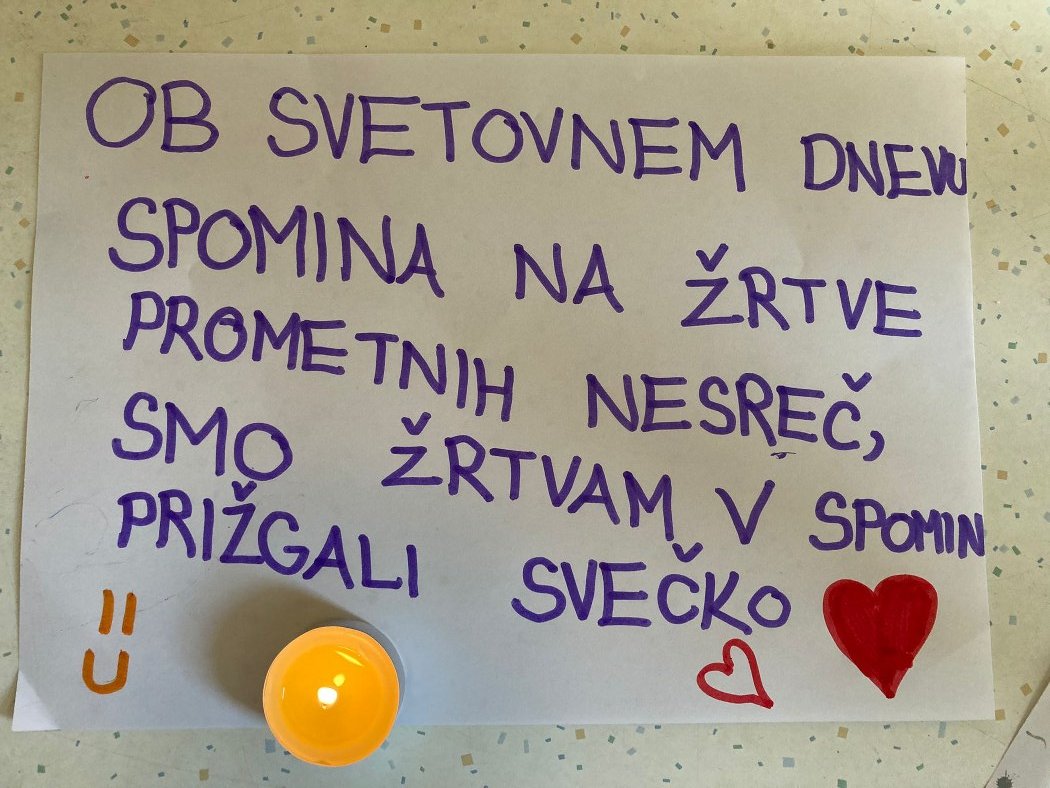 OB SVETOVNEM DNEVU
SPOMINA NA ŽRTVE
PROMETNIH NESREČ,
SMO ŽRTVAM V SPOMIN
PRIŽGALI SVEČKO